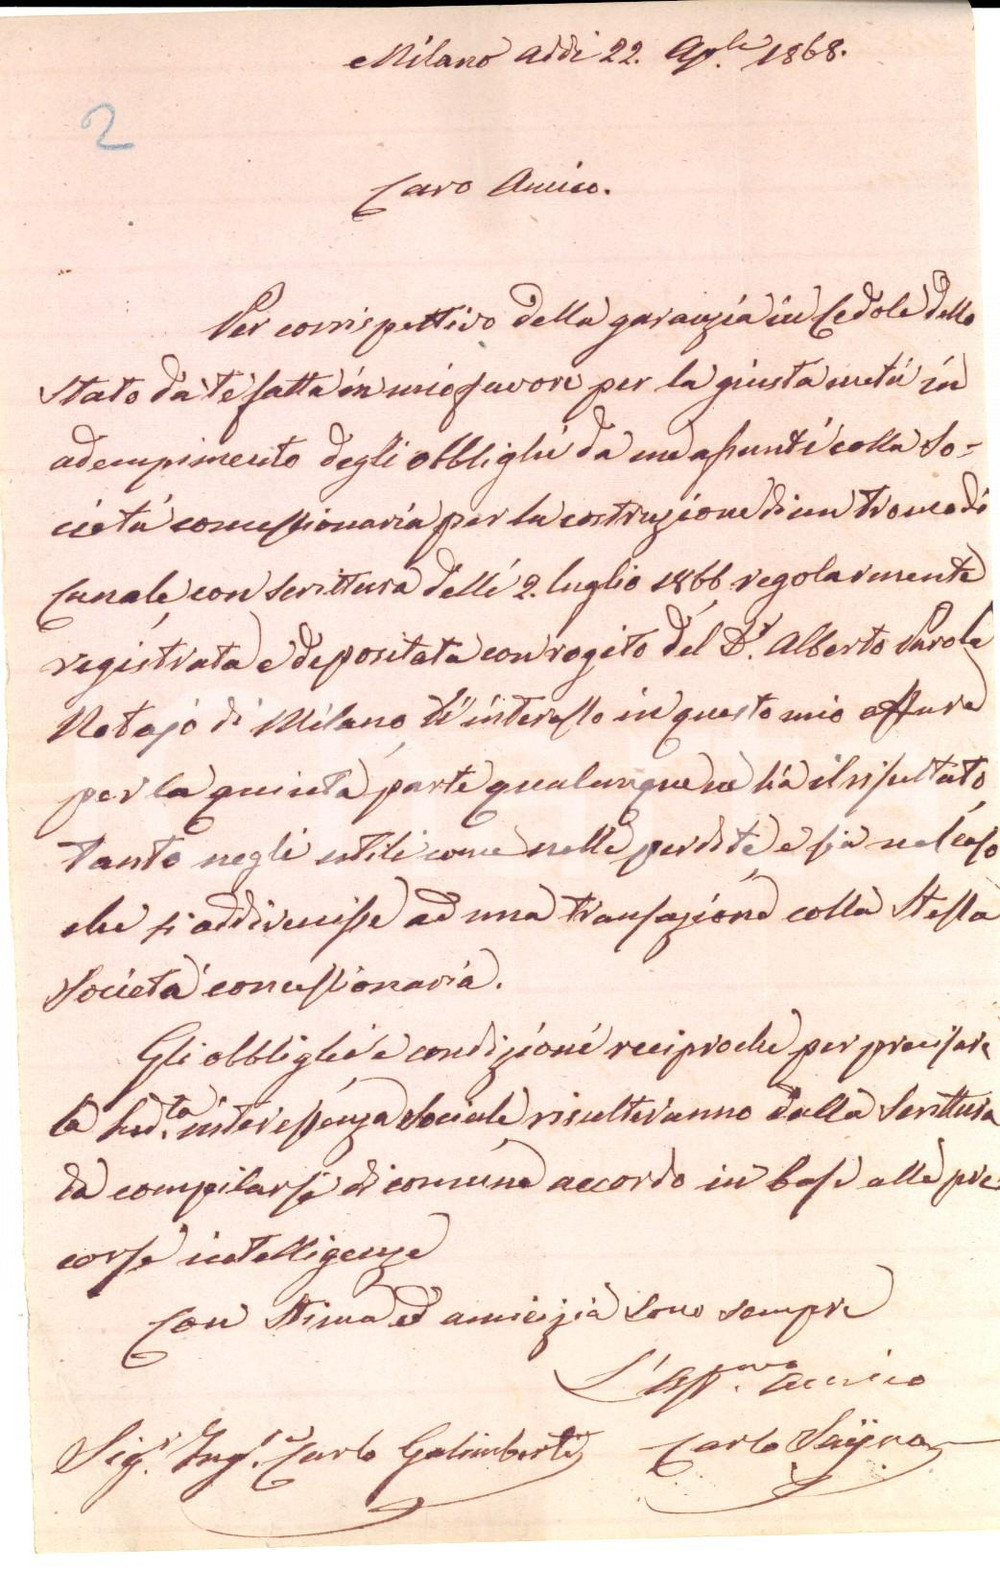 Milano addi 22. Ap.le 1868.
2
Caro Amico.
Per corrispettivo della garanzia in Cedole dello
Stato da te fatta in mio favore per la giusta metà in
adempimento degli obblighi da me assunti colla So-
cietà concessionaria per la costruzione di un tronco di
Canale con Scrittura delli 2. luglio 1866 regolarmente
registrata e depositata con rogito del D.r Alberto Parola
Notajo di Milano t'interesso in questo mio affare
per la quinta parte qualunque ne sia il risultato
tanto negli utili come nelle perdite e sia nel caso
che si addivenisse ad una transazione colla stessa
Società concessionaria.
Gli obblighi e condizioni reciproche per precisare
la sud.ta interessenza sociale risulteranno dalla Scrittura
da compilarsi di comune accordo in base alle pre-
corse intelligenze
Con stima ed amicizia sono sempre
L'Aff.mo amico
Sig.r Ing.re Carlo Galimberti Carlo